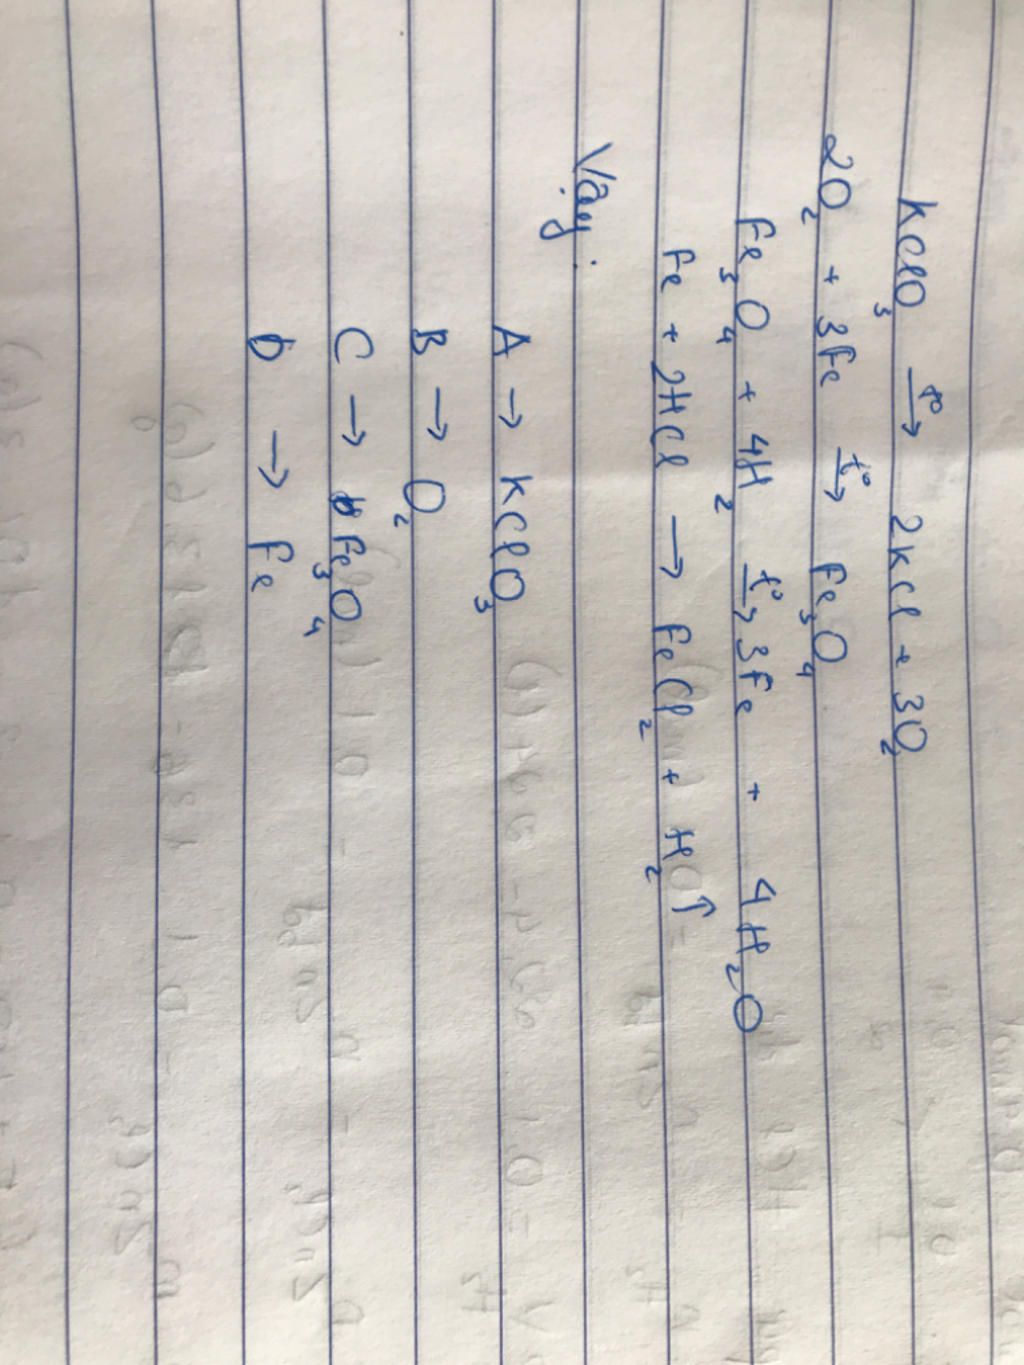 KClO₃ →(t°) 2KCl + 3O₂
2O₂ + 3Fe →(t°) Fe₃O₄
Fe₃O₄ + 4H₂ →(t°) 3Fe + 4H₂O
Fe + 2HCl → FeCl₂ + H₂↑
Vậy :
A → KClO₃
B → O₂
C → Fe₃O₄
D → Fe